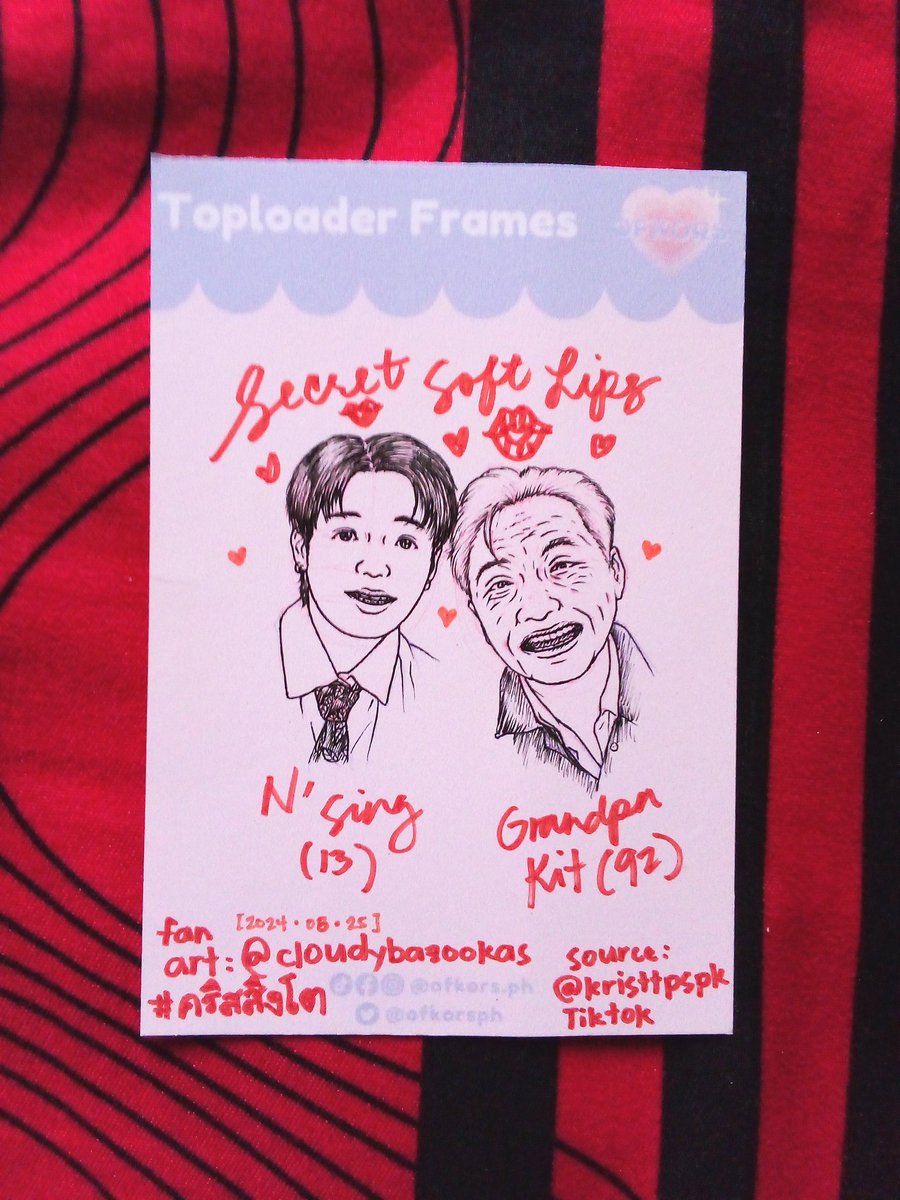 Toploader Frames
Secret Soft Lips
N' Sing
(13)
Grandpa
Kit (92)
fan [2024.08.25]
art: @cloudybazookas
#คริสสิงโต
source:
@kristtpspk
Tiktok
@ofkors.ph
@ofkorsph